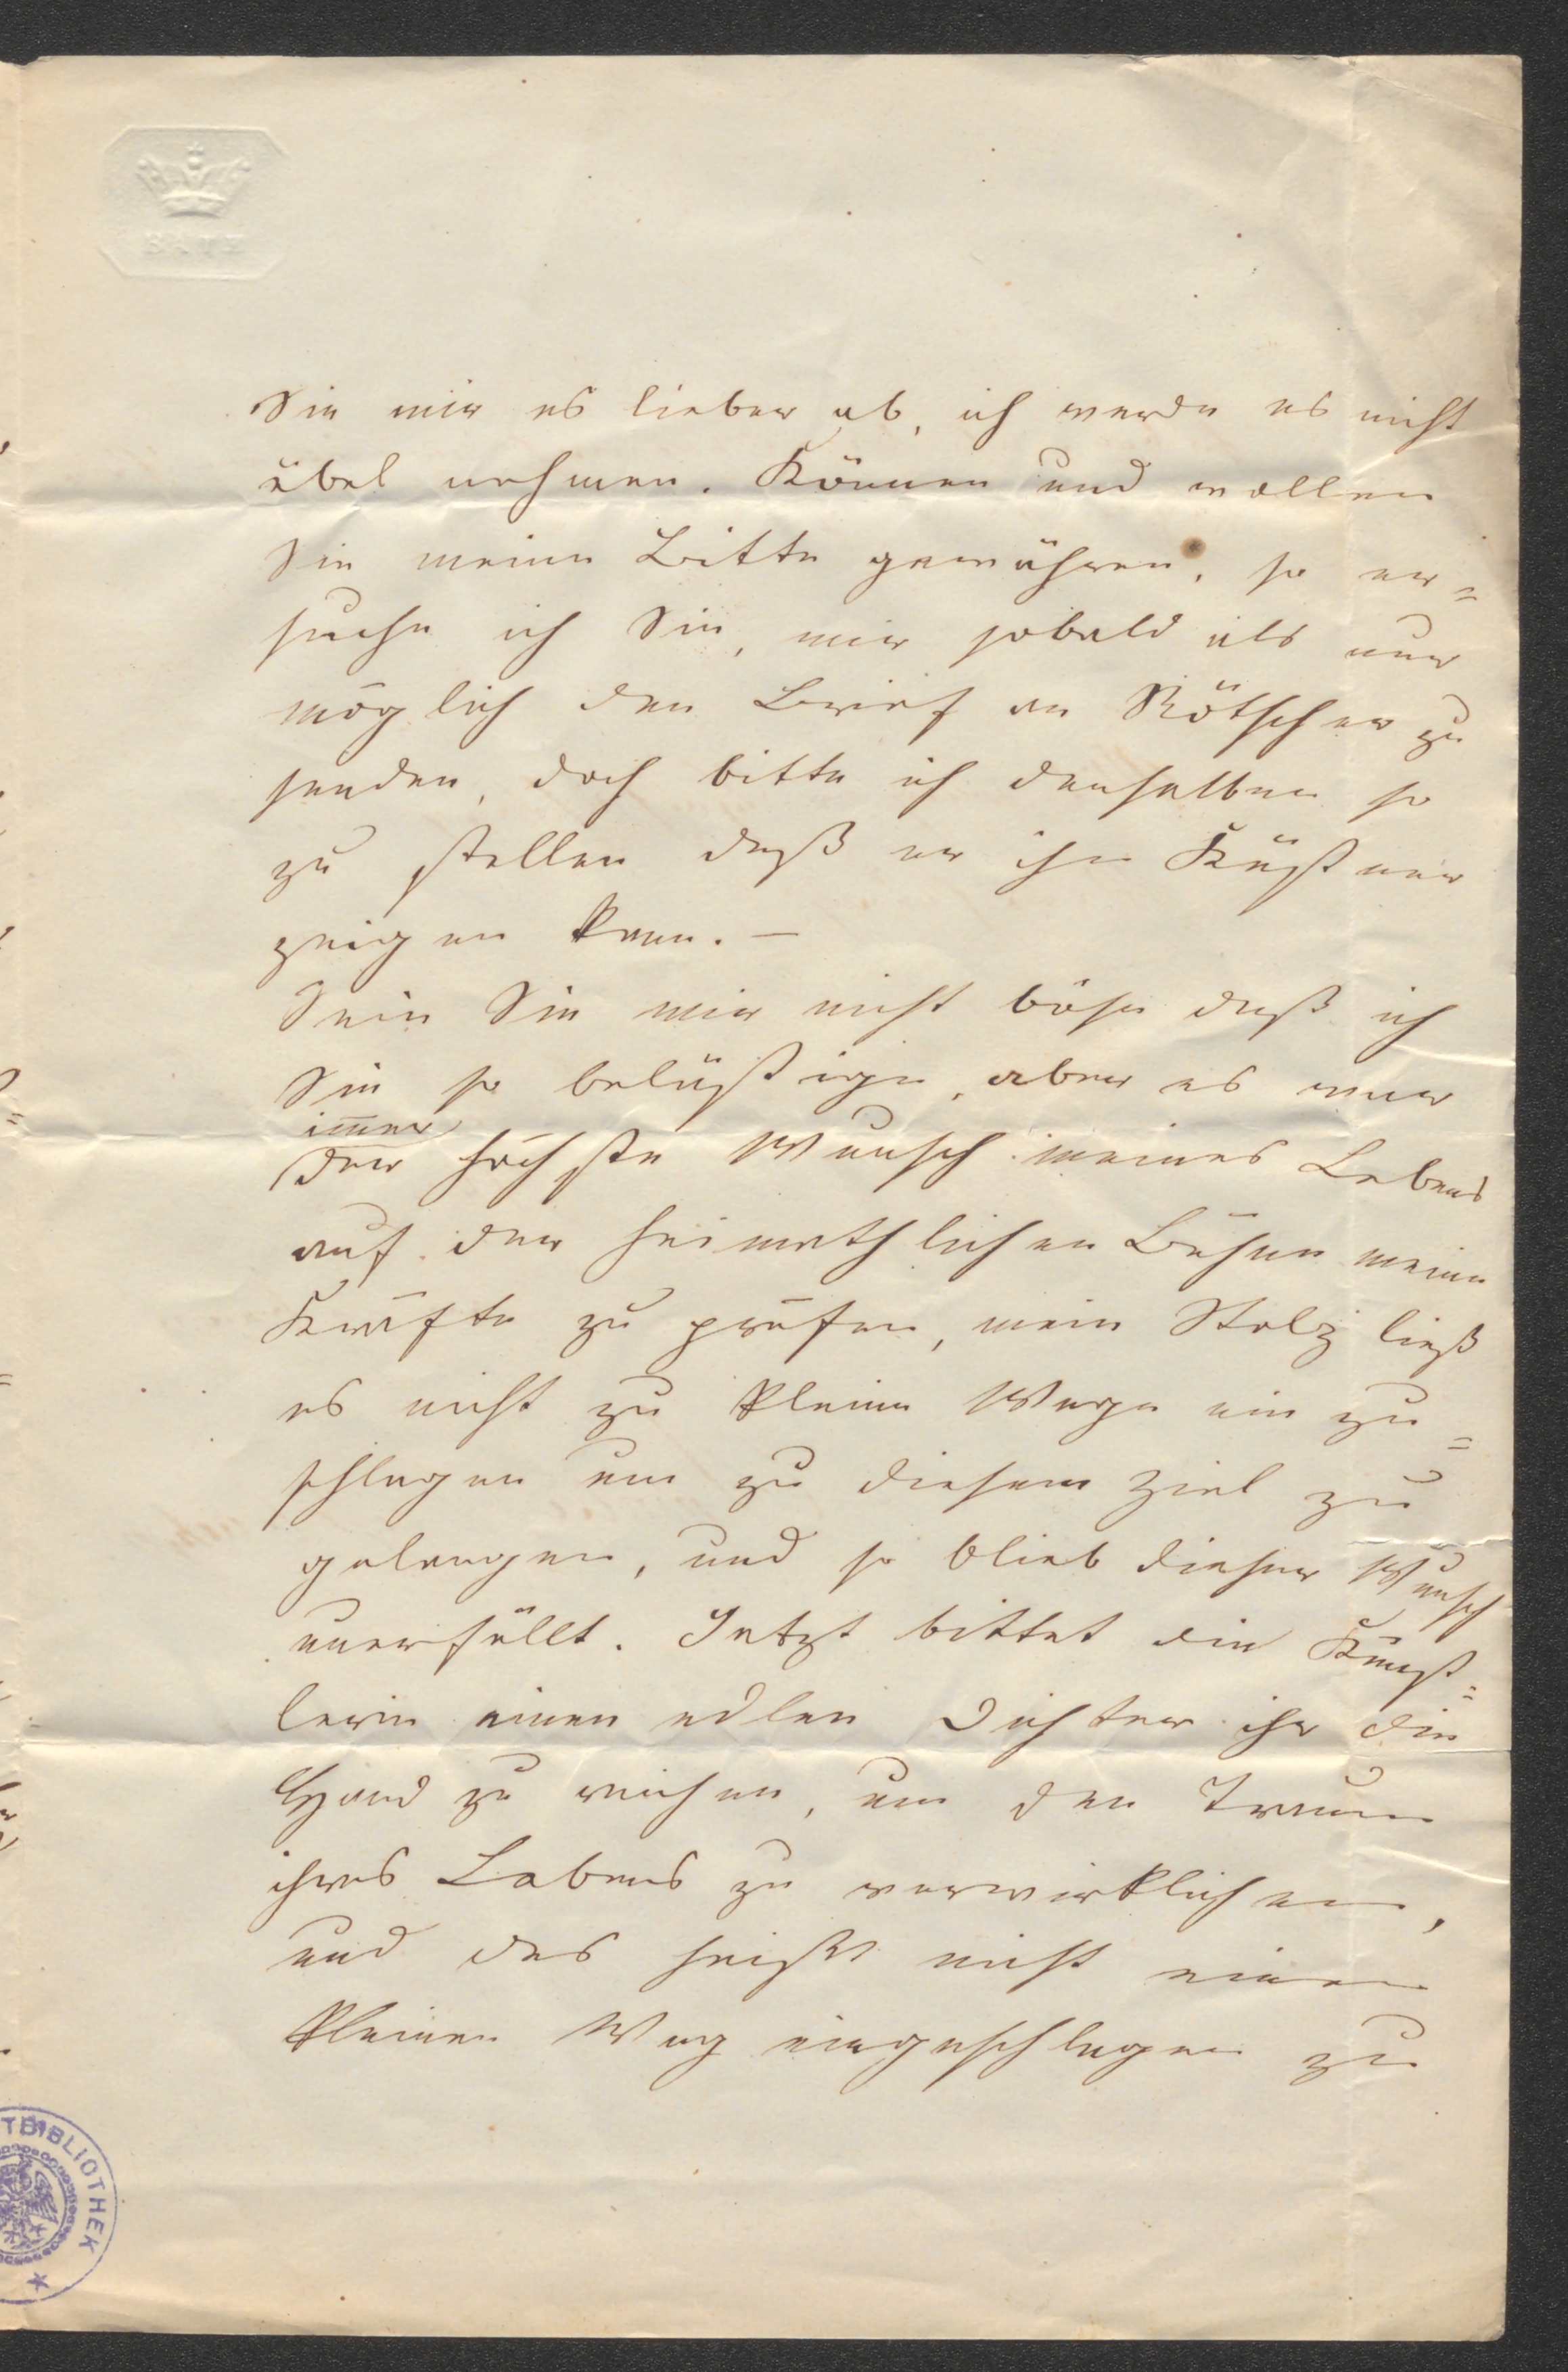 BATH
Sie mir es lieber ab, ich werde es nicht
übel nehmen. Können und wollen
Sie meine Bitte gewähren, so er=
suche ich Sie, mir sobald als nur
möglich den Brief an Rötscher zu
senden, doch bitte ich denselben so
zu stellen daß er ihn Küstner
zeigen kann. —
Sein Sie mir nicht böse daß ich
Sie so belästige, aber es war
immer
der höchste Wunsch meines Lebens
auf der heimathlichen Bühne meine
Kräfte zu prüfen, mein Stolz ließ
es nicht zu kleine Wege ein zu=
schlagen um zu diesem Ziel zu
gelangen, und so blieb dieser Wunsch
unerfüllt. Jetzt bittet die Künst=
lerin einen edlen Dichter ihr die
Hand zu reichen, um den Traum
ihres Lebens zu verwirklichen,
und das heißt nicht einen
kleinen Weg eingeschlagen zu
TBIBLIOTHEK